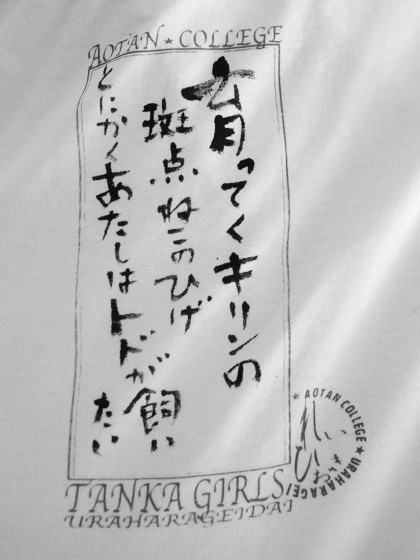 AOTAN★COLLEGE
育ってくキリンの
斑点ねこのひげ
とにかくあたしはトドが飼い
たい
TANKA GIRLS
URAHARAGEIDAI
★ AOTAN COLLEGE ★ URAHARAGEI